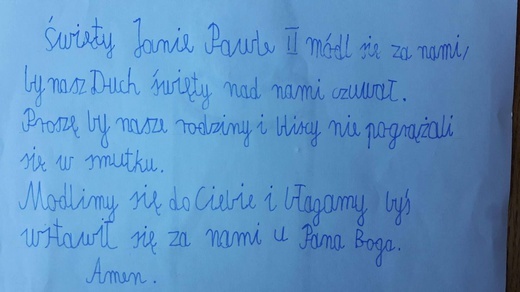 Święty Janie Pawle II módl się za nami,
by nasz Duch święty nad nami czuwał.
Proszę by nasze rodziny i bliscy nie pogrążali
się w smutku.
Modlimy się do Ciebie i błagamy byś
wstawił się za nami u Pana Boga.
Amen.